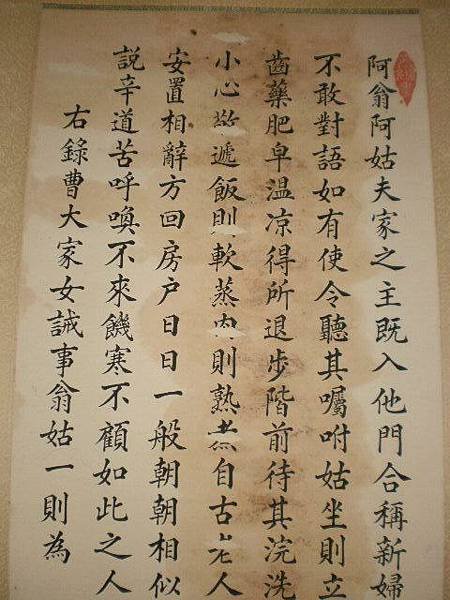 阿翁阿姑夫家之主既入他門合稱新婦
不敢對語如有使令聽其囑咐姑坐則立
齒藥肥皁温凉得所退步階前待其浣洗
小心遞飯則軟蒸肉則熟煮自古老人
安置相辭方回房户日日一般朝朝相似
説辛道苦呼喚不來饑寒不顧如此之人
右錄曹大家女誡事翁姑一則為